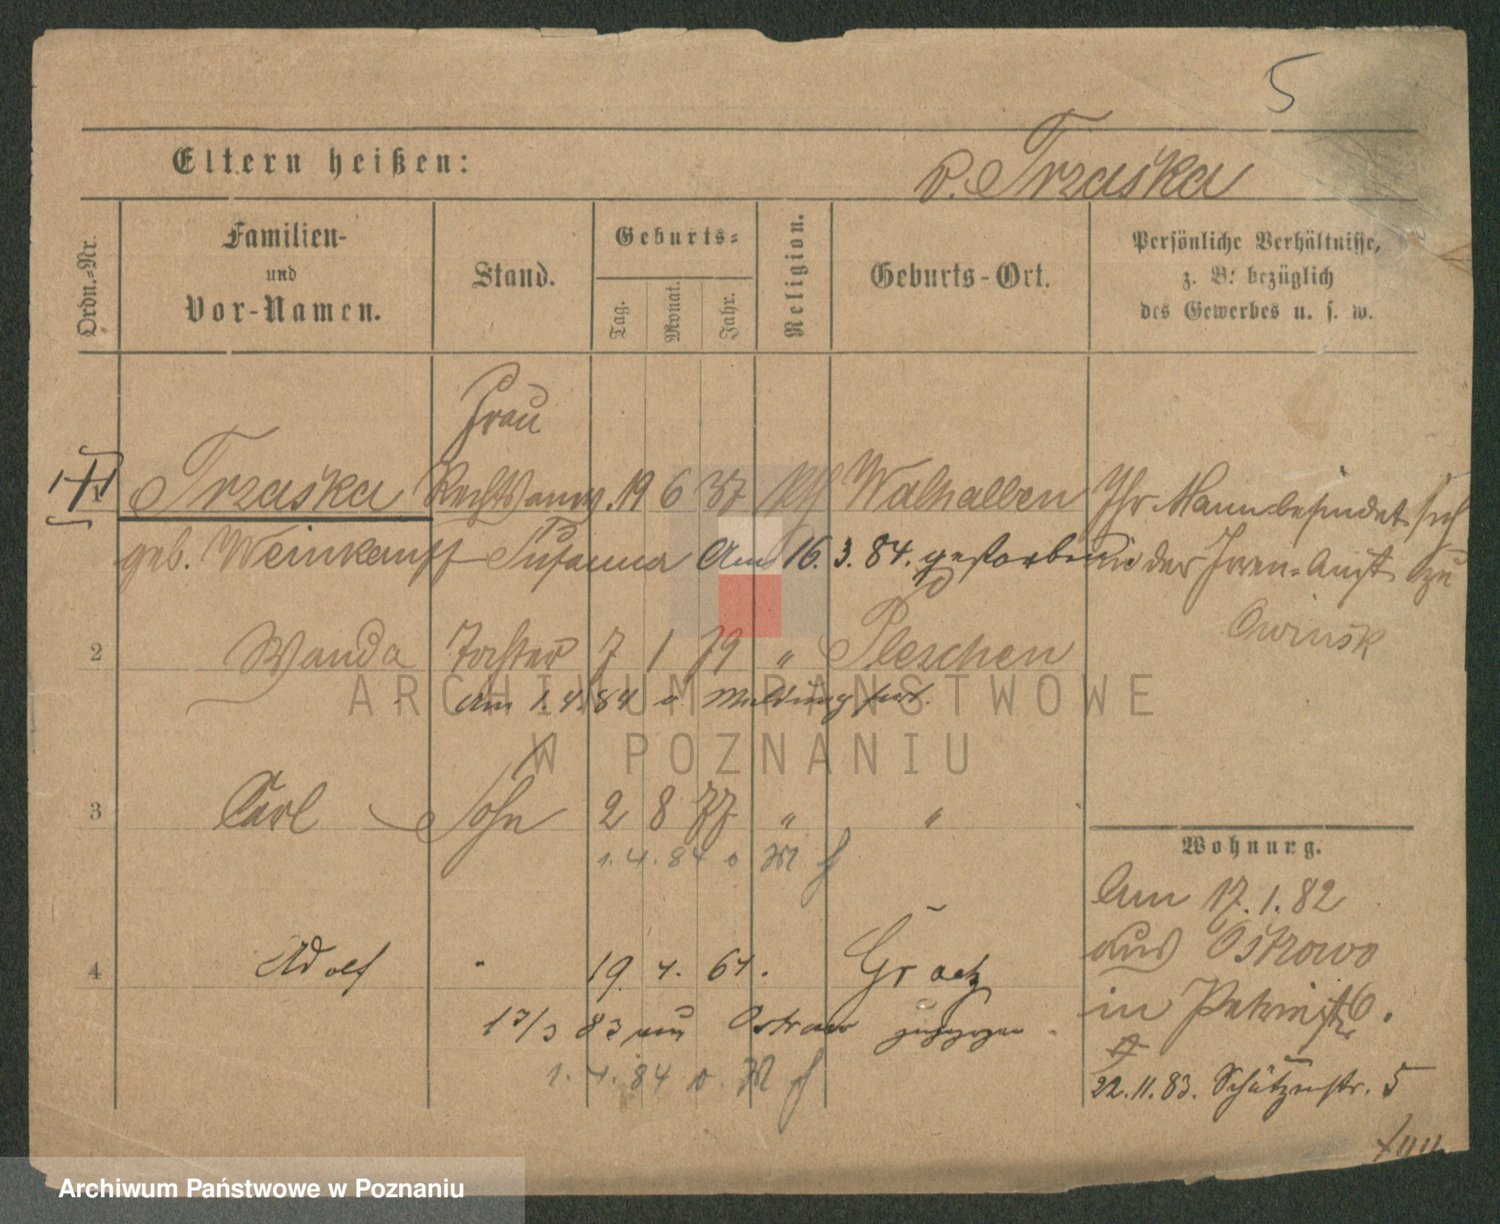 5
Eltern heißen: v. Trzaska
Ordn.-Nr.
Familien-
und
Vor-Namen.
Stand.
Geburts-
Tag.
Monat.
Jahr.
Religion.
Geburts-Ort.
Persönliche Verhältnisse,
z. B. bezüglich
des Gewerbes u. s. w.
Frau
1 Trzaska Rechtsanw. 19 6 37 Walhalben Ihr Mann befindet sich
geb. Weinkauff Susanna Am 16.3.84. gestorben in der Irren-Anst. zu
Owinsk
2 Wanda Tochter 7 1 79 " Pleschen
Am 1.4.84 o. Meldung fort.
3 Carl Sohn 2 8 77 " "
1.4.84 o M f
Wohnung.
Am 17.1.82
aus Ostrowo
in 6.
4 Adolf " 19. 4. 64. Graetz
13/3 83 aus Ostrowo zugezogen.
1.4.84 o. M f
22.11.83. Schützenstr. 5
ARCHIWUM PAŃSTWOWE
W POZNANIU
Archiwum Państwowe w Poznaniu